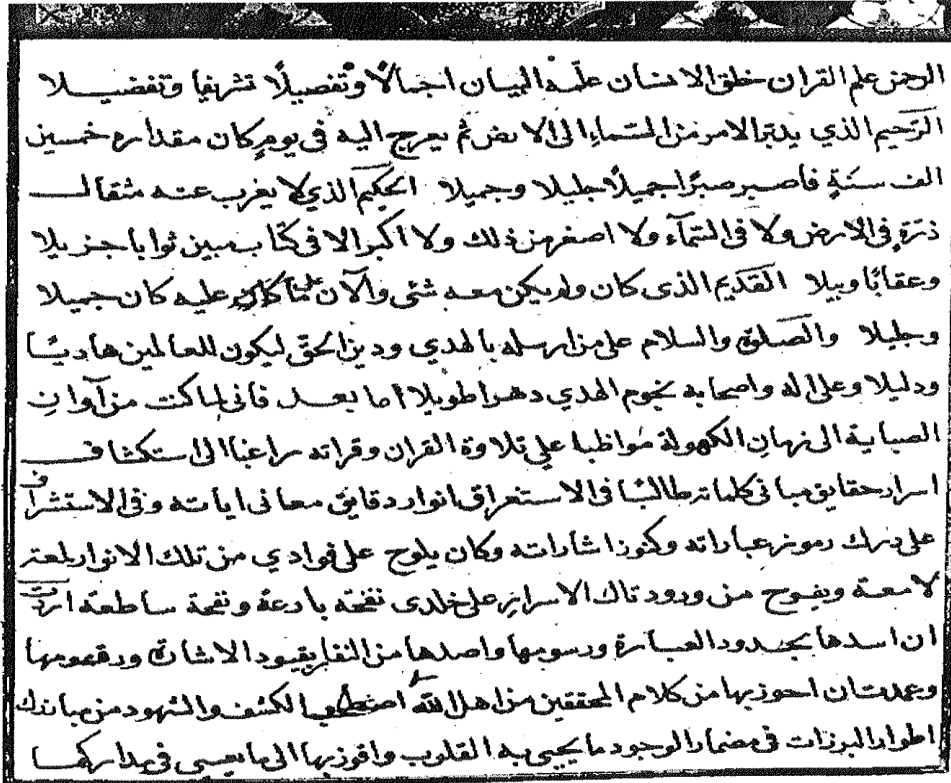 الرحمن علم القران خلق الانسان علمه البيان اجمالا وتفصيلا تشريفا وتفضيلا
الرحيم الذي يدبر الامر من السماء الى الارض ثم يعرج اليه في يوم كان مقداره خمسين
الف سنة فاصبر صبرا جميلا جليلا وجميلا الحكيم الذي لا يغرب عنه مثقال
ذرة في الارض ولا في السماء ولا اصغر من ذلك ولا اكبر الا في كتاب مبين ثوابا جزيلا
وعقابا وبيلا القديم الذي كان ولم يكن معه شئ والآن على ما كان عليه كان جميلا
وجليلا والصلوة والسلام على من ارسله بالهدي ودين الحق ليكون للعالمين هاديا
ودليلا وعلى اله واصحابه نجوم الهدي دهرا طويلا اما بعد فاني لما كنت من آوان
الصباية الى زمان الكهولة مواظبا علي تلاوة القران وقراته راغبا الى استكشاف
اسرار حقايق مباني كلماته طالبا في الاستغراق انوار دقايق معاني اياته وفي الاستشراف
على درك رموز عباراته وكنوز اشاراته وكان يلوح على فوادي من تلك الانوار لمعة
لامعة ويفوح من ورود تلك الاسرار على خلدى نفحة بادعة ونفحة ساطعة اردت
ان اسدها بحدود العبارة ورسومها واصدها من النفار بقيود الاشارة ورقومها
وعمدت ان احوزها من كلام المحققين من اهل الله الكشف والشهود من مباني
اطوار البرزات في مضمار الوجود ما يحيى به القلوب وافوزها الى ما يعيى في مداركها